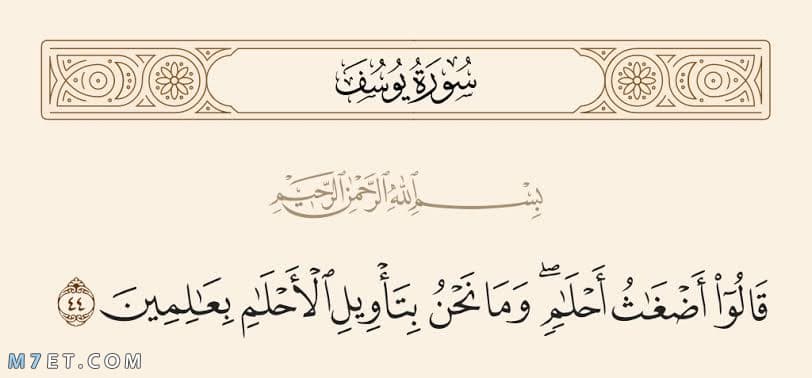 سُورَةُ يُوسُفَ
بِسْمِ ٱللَّهِ ٱلرَّحْمَٰنِ ٱلرَّحِيمِ
قَالُوٓا۟ أَضْغَٰثُ أَحْلَٰمٍۢ ۖ وَمَا نَحْنُ بِتَأْوِيلِ ٱلْأَحْلَٰمِ بِعَٰلِمِينَ ٤٤
M7ET.COM